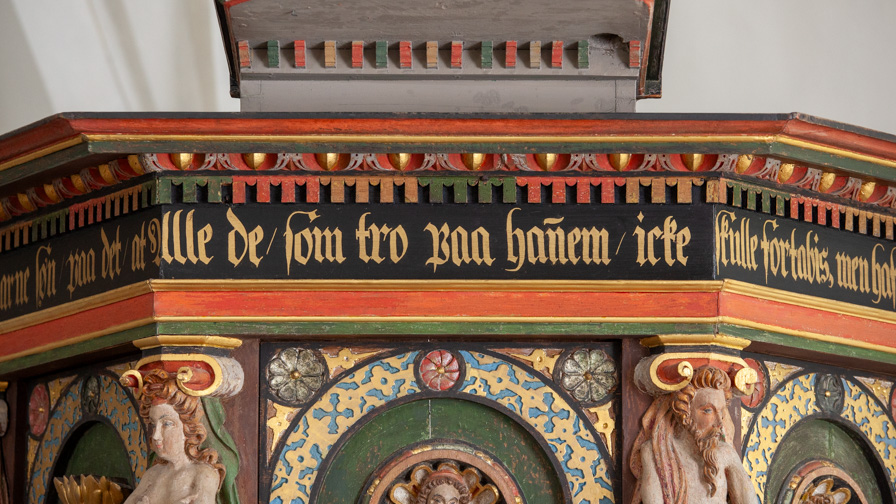 arne søn / paa det / at Alle de / som tro paa hañem / icke skulle fortabis, men ha